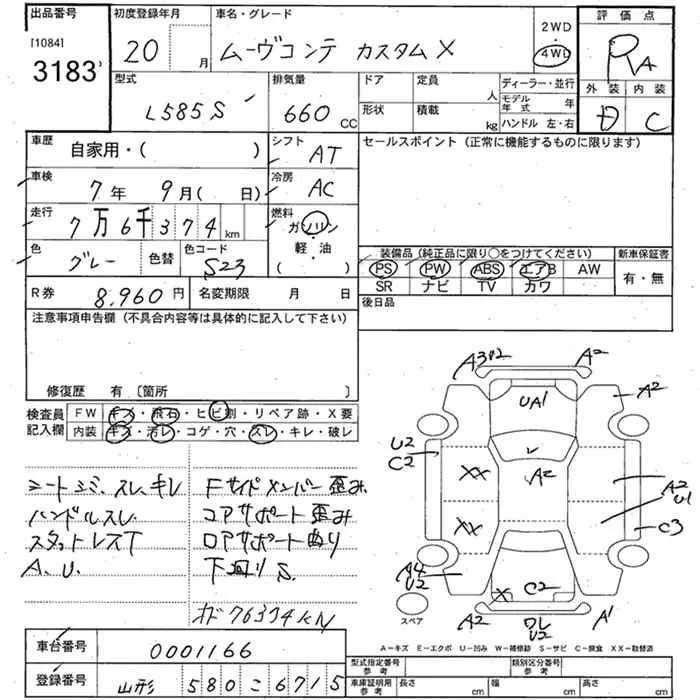 出品番号
[1084]
3183
初度登録年月
20 月
車名・グレード
ムーヴコンテ カスタムX
2WD
4WD
評価点
RA
外装 内装
D C
型式
L585S
排気量
660 CC
ドア 定員 人
形状 積載 kg
ディーラー・並行
モデル年式 年
ハンドル 左・右
車歴
自家用・( )
シフト
AT
セールスポイント (正常に機能するものに限ります)
車検
7年 9月( 日)
冷房
AC
走行
7万6千374km
燃料
ガソリン
軽・油
( )
色
グレー
色替
色コード
S23
装備品 (純正品に限り○をつけてください)
新車保証書
PS PW ABS エアB AW
SR ナビ TV カワ
有・無
R券
8,960円
名変期限 月 日
後日品
注意事項申告欄 (不具合内容等は具体的に記入して下さい)
修復歴 有 〔箇所 〕
検査員記入欄
FW キズ・飛石・ヒビ割・リペア跡・X要
内装 キズ・汚レ・コゲ・穴・スレ・キレ・破レ
シートシミ、スレ、キレ
ハンドルスレ
スタットレスT
A、U、
Fサイドメンバー歪み
コアサポート歪み
ロアサポート曲り
下廻りS
メーター 76374KM
A3 A2
UA1
A2
U2
C2
XX
A2
A2
U1
XX
C3
A4
U2
X
C2
A2
ワレ
U2
A1
スペア
A−キズ E−エクボ U−凹み W−補修跡 S−サビ C−腐食 XX−取替済
車台番号
0001166
登録番号
山形 580 こ 6715
型式指定番号 参考
類別区分番号 参考
車庫証明用 参考
長さ cm
幅 cm
高さ cm